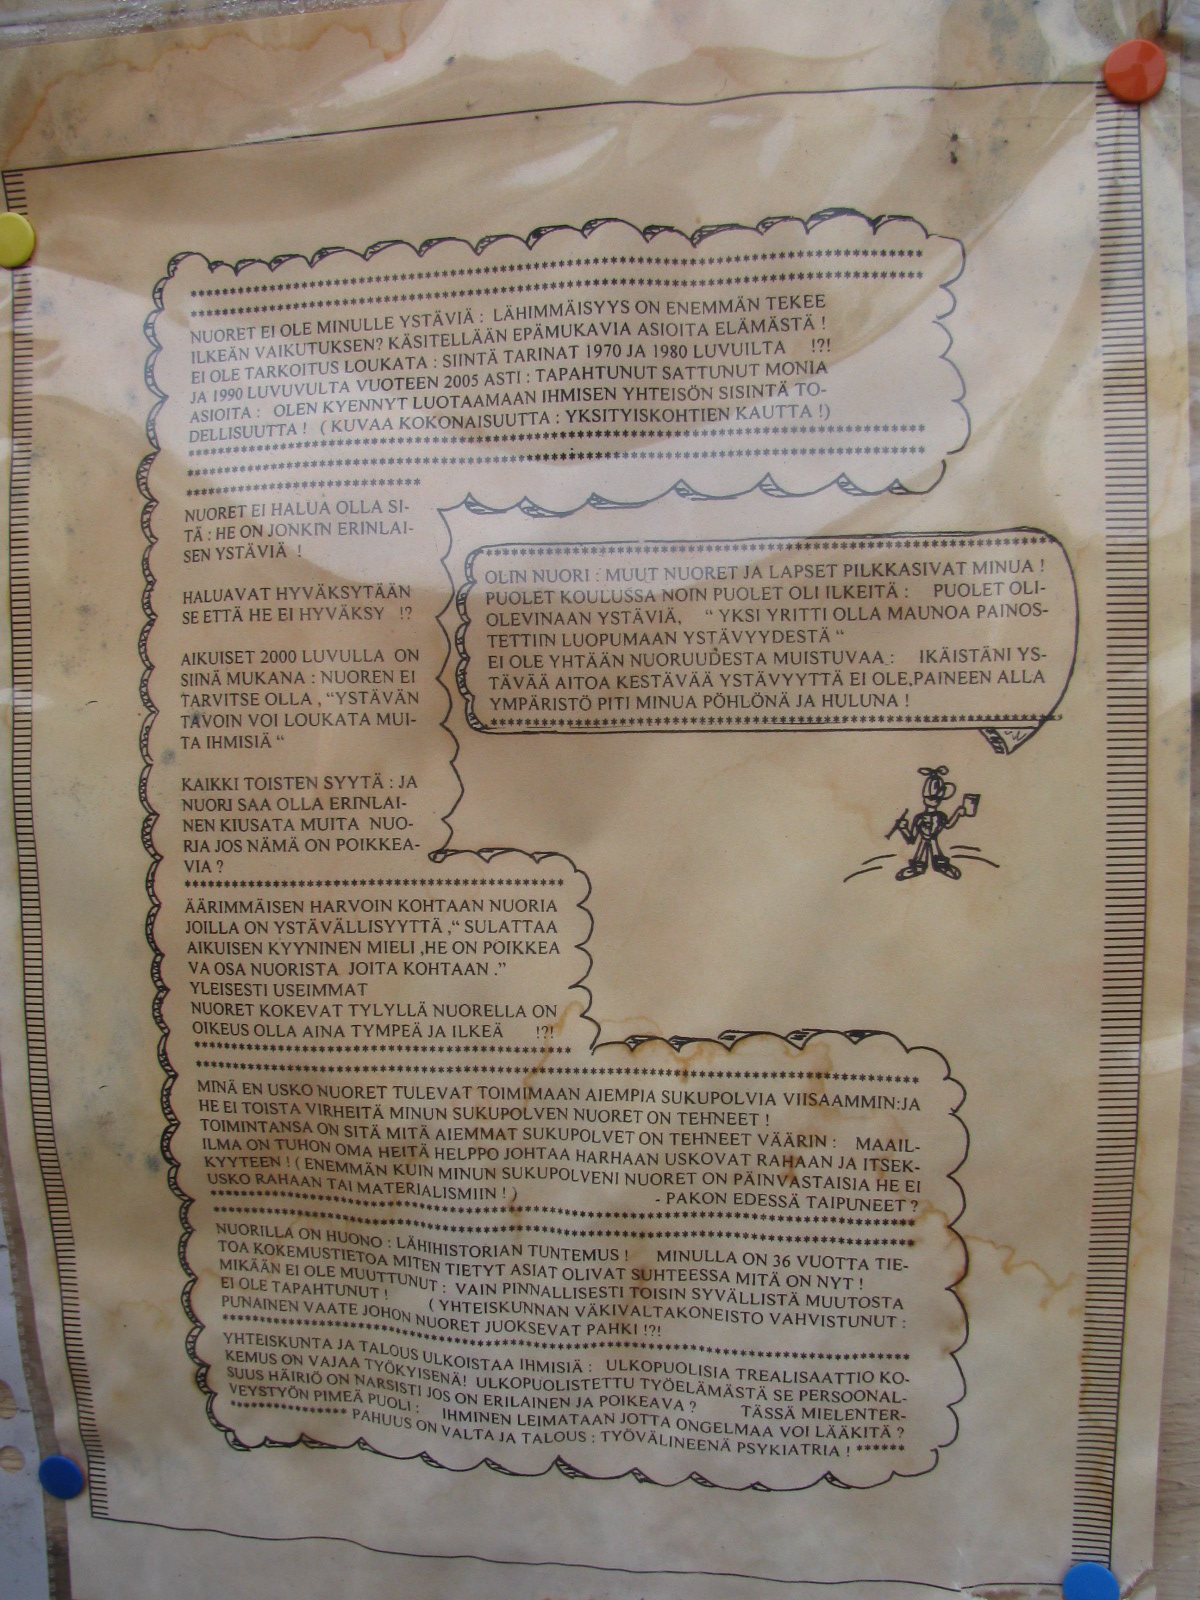 NUORET EI OLE MINULLE YSTÄVIÄ : LÄHIMMÄISYYS ON ENEMMÄN TEKEE
ILKEÄN VAIKUTUKSEN? KÄSITELLÄÄN EPÄMUKAVIA ASIOITA ELÄMÄSTÄ !
EI OLE TARKOITUS LOUKATA : SIINTÄ TARINAT 1970 JA 1980 LUVUILTA !?!
JA 1990 LUVUVULTA VUOTEEN 2005 ASTI : TAPAHTUNUT SATTUNUT MONIA
ASIOITA : OLEN KYENNYT LUOTAAMAAN IHMISEN YHTEISÖN SISINTÄ TO-
DELLISUUTTA ! ( KUVAA KOKONAISUUTTA : YKSITYISKOHTIEN KAUTTA !)
NUORET EI HALUA OLLA SI-
TÄ : HE ON JONKIN ERINLAI-
SEN YSTÄVIÄ !
HALUAVAT HYVÄKSYTÄÄN
SE ETTÄ HE EI HYVÄKSY !?
AIKUISET 2000 LUVULLA ON
SIINÄ MUKANA : NUOREN EI
TARVITSE OLLA , “YSTÄVÄN
TAVOIN VOI LOUKATA MUI-
TA IHMISIÄ “
KAIKKI TOISTEN SYYTÄ : JA
NUORI SAA OLLA ERINLAI-
NEN KIUSATA MUITA NUO-
RIA JOS NÄMÄ ON POIKKEA-
VIA ?
OLIN NUORI : MUUT NUORET JA LAPSET PILKKASIVAT MINUA !
PUOLET KOULUSSA NOIN PUOLET OLI ILKEITÄ : PUOLET OLI-
OLEVINAAN YSTÄVIÄ, “ YKSI YRITTI OLLA MAUNOA PAINOS-
TETTIIN LUOPUMAAN YSTÄVYYDESTÄ “
EI OLE YHTÄÄN NUORUUDESTA MUISTUVAA : IKÄISTÄNI YS-
TÄVÄÄ AITOA KESTÄVÄÄ YSTÄVYYTTÄ EI OLE,PAINEEN ALLA
YMPÄRISTÖ PITI MINUA PÖHLÖNÄ JA HULUNA !
ÄÄRIMMÄISEN HARVOIN KOHTAAN NUORIA
JOILLA ON YSTÄVÄLLISYYTTÄ ,“ SULATTAA
AIKUISEN KYYNINEN MIELI ,HE ON POIKKEA
VA OSA NUORISTA JOITA KOHTAAN .”
YLEISESTI USEIMMAT
NUORET KOKEVAT TYLYLLÄ NUORELLA ON
OIKEUS OLLA AINA TYMPEÄ JA ILKEÄ !?!
MINÄ EN USKO NUORET TULEVAT TOIMIMAAN AIEMPIA SUKUPOLVIA VIISAAMMIN:JA
HE EI TOISTA VIRHEITÄ MINUN SUKUPOLVEN NUORET ON TEHNEET !
TOIMINTANSA ON SITÄ MITÄ AIEMMAT SUKUPOLVET ON TEHNEET VÄÄRIN : MAAIL-
ILMA ON TUHON OMA HEITÄ HELPPO JOHTAA HARHAAN USKOVAT RAHAAN JA ITSEK-
KYYTEEN ! ( ENEMMÄN KUIN MINUN SUKUPOLVENI NUORET ON PÄINVASTAISIA HE EI
USKO RAHAAN TAI MATERIALISMIIN ! ) - PAKON EDESSÄ TAIPUNEET ?
NUORILLA ON HUONO : LÄHIHISTORIAN TUNTEMUS ! MINULLA ON 36 VUOTTA TIE-
TOA KOKEMUSTIETOA MITEN TIETYT ASIAT OLIVAT SUHTEESSA MITÄ ON NYT !
MIKÄÄN EI OLE MUUTTUNUT : VAIN PINNALLISESTI TOISIN SYVÄLLISTÄ MUUTOSTA
EI OLE TAPAHTUNUT ! ( YHTEISKUNNAN VÄKIVALTAKONEISTO VAHVISTUNUT :
PUNAINEN VAATE JOHON NUORET JUOKSEVAT PAHKI !?!
YHTEISKUNTA JA TALOUS ULKOISTAA IHMISIÄ : ULKOPUOLISIA TREALISAATTIO KO-
KEMUS ON VAJAA TYÖKYISENÄ! ULKOPUOLISTETTU TYÖELÄMÄSTÄ SE PERSOONAL-
SUUS HÄIRIÖ ON NARSISTI JOS ON ERILAINEN JA POIKEAVA ? TÄSSÄ MIELENTER-
VEYSTYÖN PIMEÄ PUOLI : IHMINEN LEIMATAAN JOTTA ONGELMAA VOI LÄÄKITÄ ?
PAHUUS ON VALTA JA TALOUS : TYÖVÄLINEENÄ PSYKIATRIA !